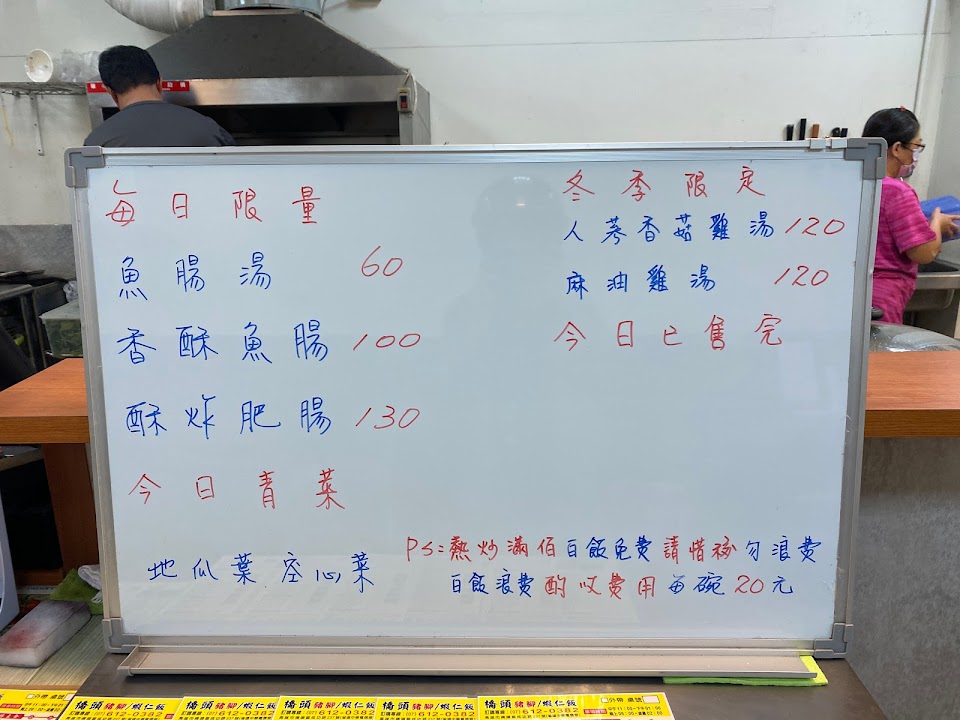 每日限量
魚腸湯 60
香酥魚腸 100
酥炸肥腸 130
今日青菜
地瓜葉 空心菜
冬季限定
人蔘香菇雞湯 120
麻油雞湯 120
今日已售完
PS:熱炒滿佰白飯免費請惜福勿浪費
白飯浪費酌收費用每碗20元
僑頭豬腳/蝦仁飯
訂購專線:(07)612-0382
僑頭豬腳/蝦仁飯
訂購專線:(07)612-0382
僑頭豬腳/蝦仁飯
訂購專線:(07)612-0382
僑頭豬腳/蝦仁飯
訂購專線:(07)612-0382